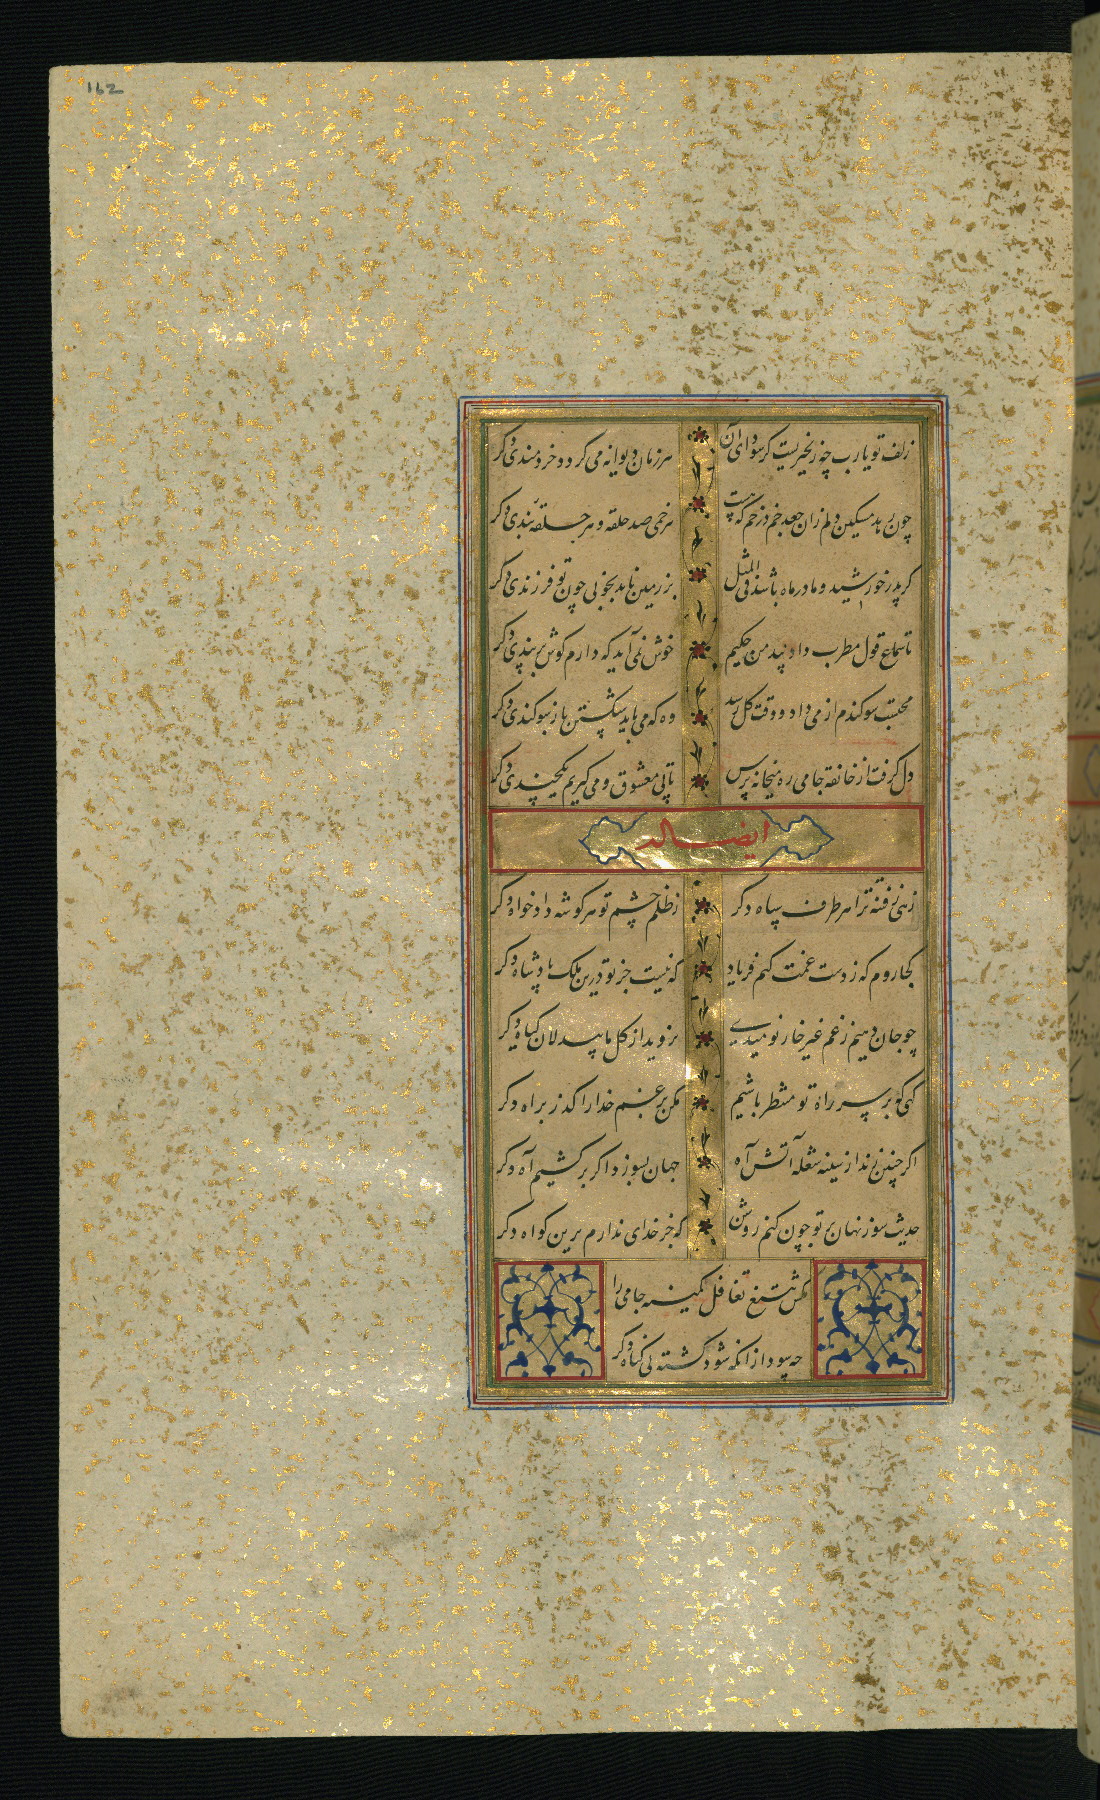 162
زلف تو یارب چه زنجیریست کز سودای آن هر زمان دیوانه می کردد خردمندی دکر
چون رهد مسکین دلم زان جعد خم در خم که هست هر خمی صد حلقه و هر حلقه بندی دکر
کر پدر خورشید و مادر ماه باشد فی المثل بر زمین ناید بخوبی چون تو فرزندی دکر
تا سماع قول مطرب داد پند من حکیم خوش نمی آید که دارم کوش بر پندی دکر
محتسب سوکندم از می داد و وقت کل رسد وه که می باید شکستن باز سوکندی دکر
دل کرفت از خانقه جامی ره میخانه پرس تا پی معشوق و می کیریم یکچندی دکر
ایضا له
زهی ز فتنه ترا هر طرف سپاه دکر ز ظلم چشم تو هر کوشه دادخواه دکر
کجا روم که ز دست غمت کنم فریاد که نیست جز تو درین ملک پادشاه دکر
چو جان دهیم ز غم غیر خار نومیدی نروید از کل ما بیدلان کیاه دیکر
کهی که بر سر راه تو منتظر باشیم مکن برغم خدا را کذر براه دکر
اکر چنین زند از سینه شعله آتش آه جهان بسوزد اکر برکشیم آه دکر
حدیث سوز نهان بر تو چون کنم روشن که جز خدای ندارم برین کواه دکر
مکش بتیغ تغافل کمینه جامی را
چه سود ازانکه شود کشته بی کناه دکر